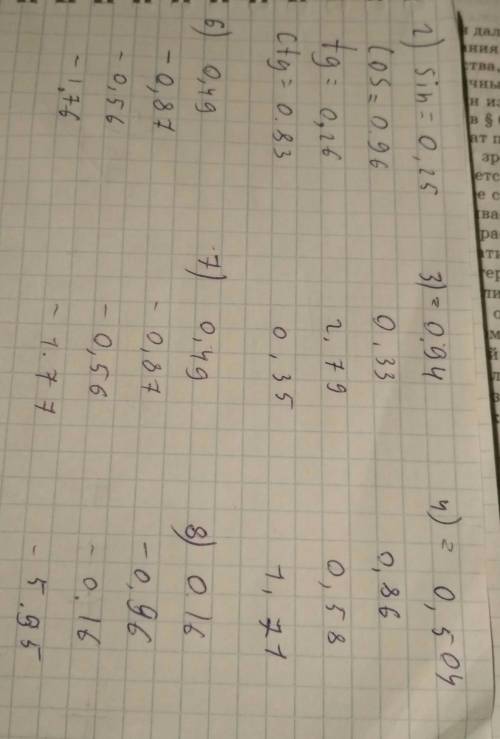 2) sin = 0,25
cos = 0.96
tg = 0,26
ctg = 0.83
3) = 0.94
0,33
2,79
0,35
4) = 0,504
0,86
0,58
1,71
6) 0,49
- 0,87
- 0,56
- 1,76
7) 0,49
- 0,87
- 0,56
- 1.77
8) 0.16
- 0,96
- 0.16
- 5.95